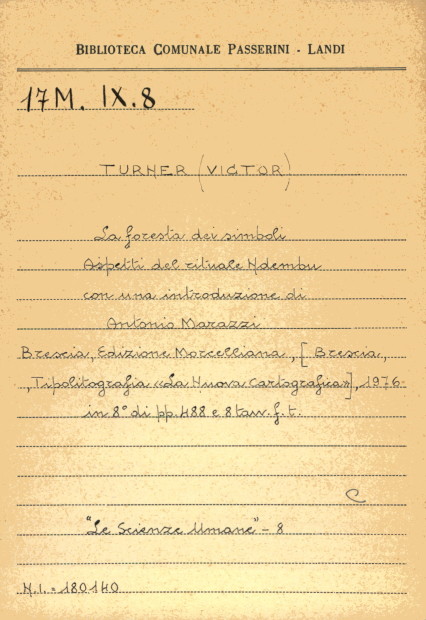 BIBLIOTECA COMUNALE PASSERINI - LANDI
17M. IX.8
TURNER (VICTOR)
La foresta dei simboli
Aspetti del rituale Ndembu
con una introduzione di
Antonio Marazzi
Brescia, Edizione Morcelliana, [Brescia,
Tipolitografia «La Nuova Cartografica»], 1976.
in 8° di pp. 488 e 8 tav. f. t.
C
"Le Scienze Umane" - 8
N.I. = 180140